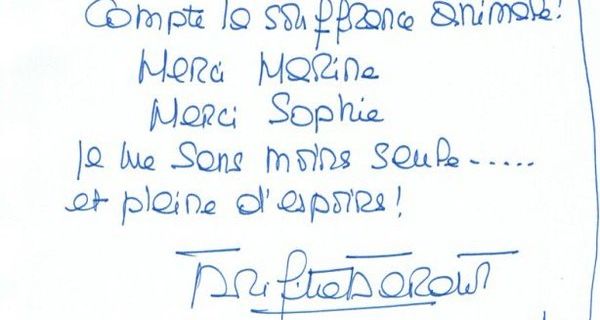 Compte la souffrance animale!
Merci Marine
Merci Sophie
Je me sens moins seule.....
et pleine d'espoirs!